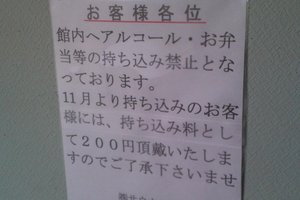 お客様各位
館内へアルコール・お弁
当等の持ち込み禁止とな
っております。
11月より持ち込みのお客
様には、持ち込み料とし
て200円頂戴いたしま
すのでご了承下さいませ